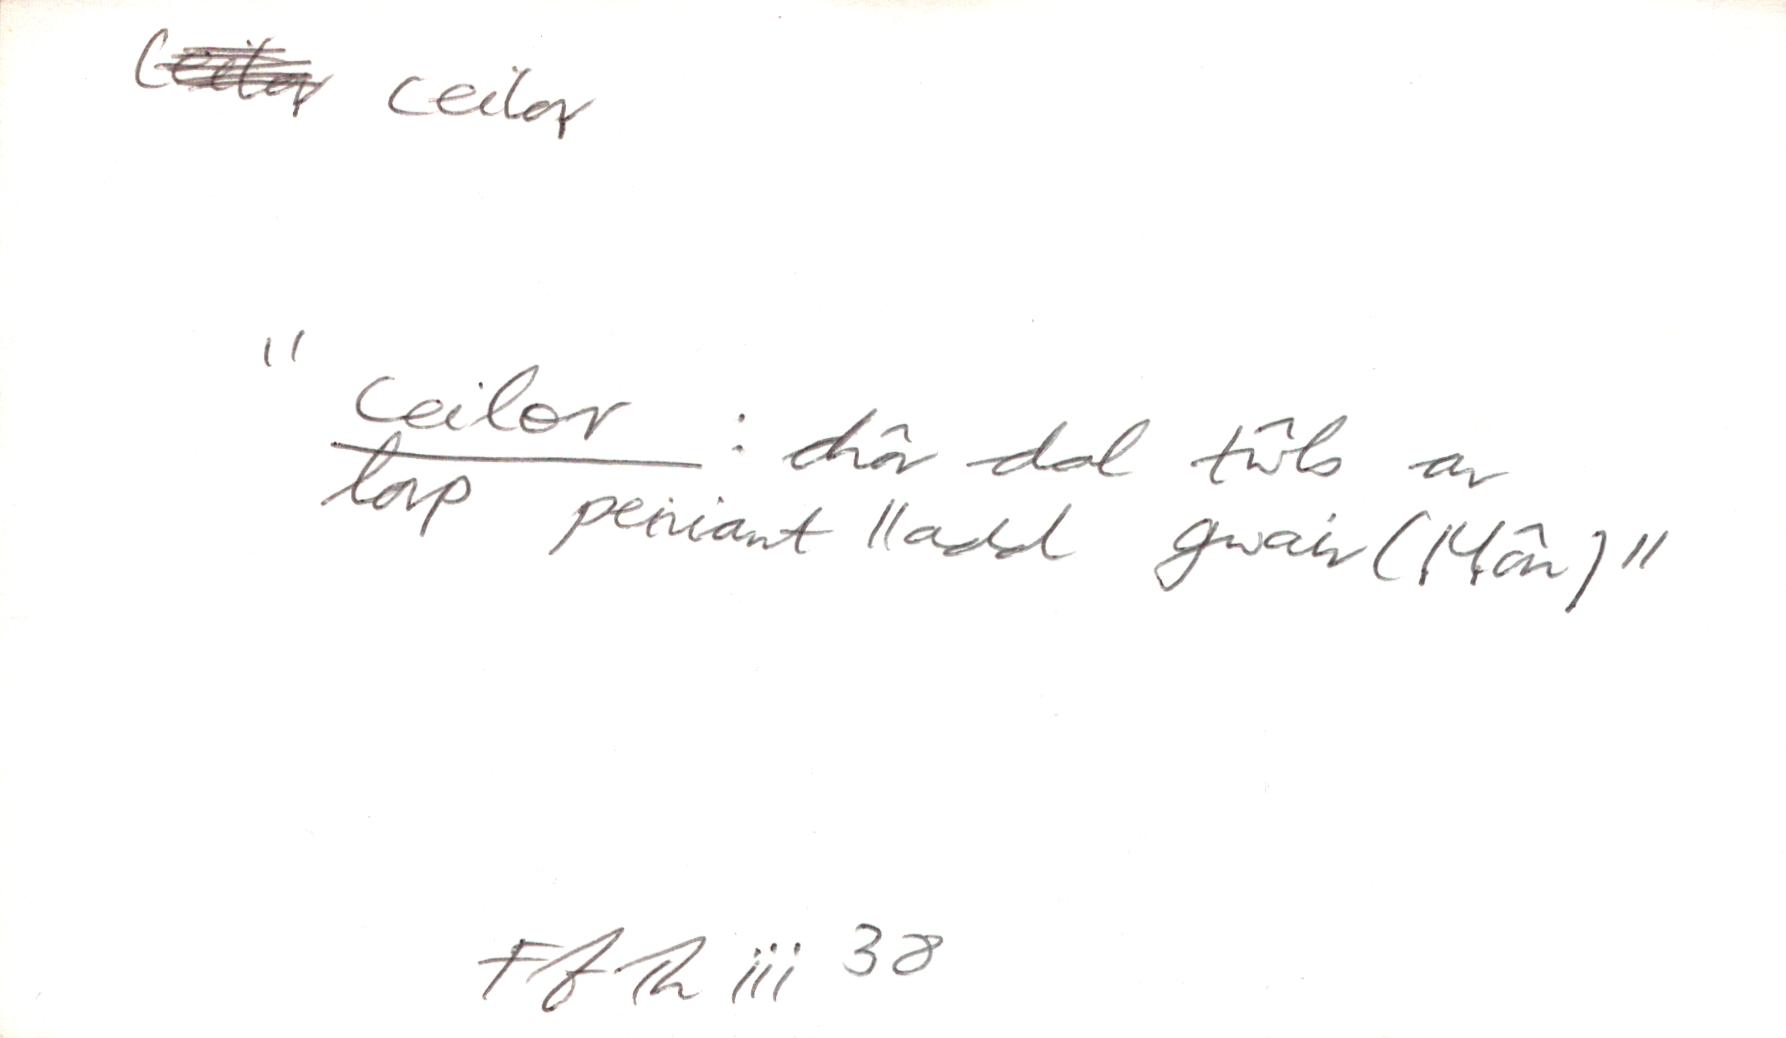 ceilor
"ceilor : drôr dal tŵls ar
lorp peiriant lladd gwair (Môn)"
Ff Th iii 38